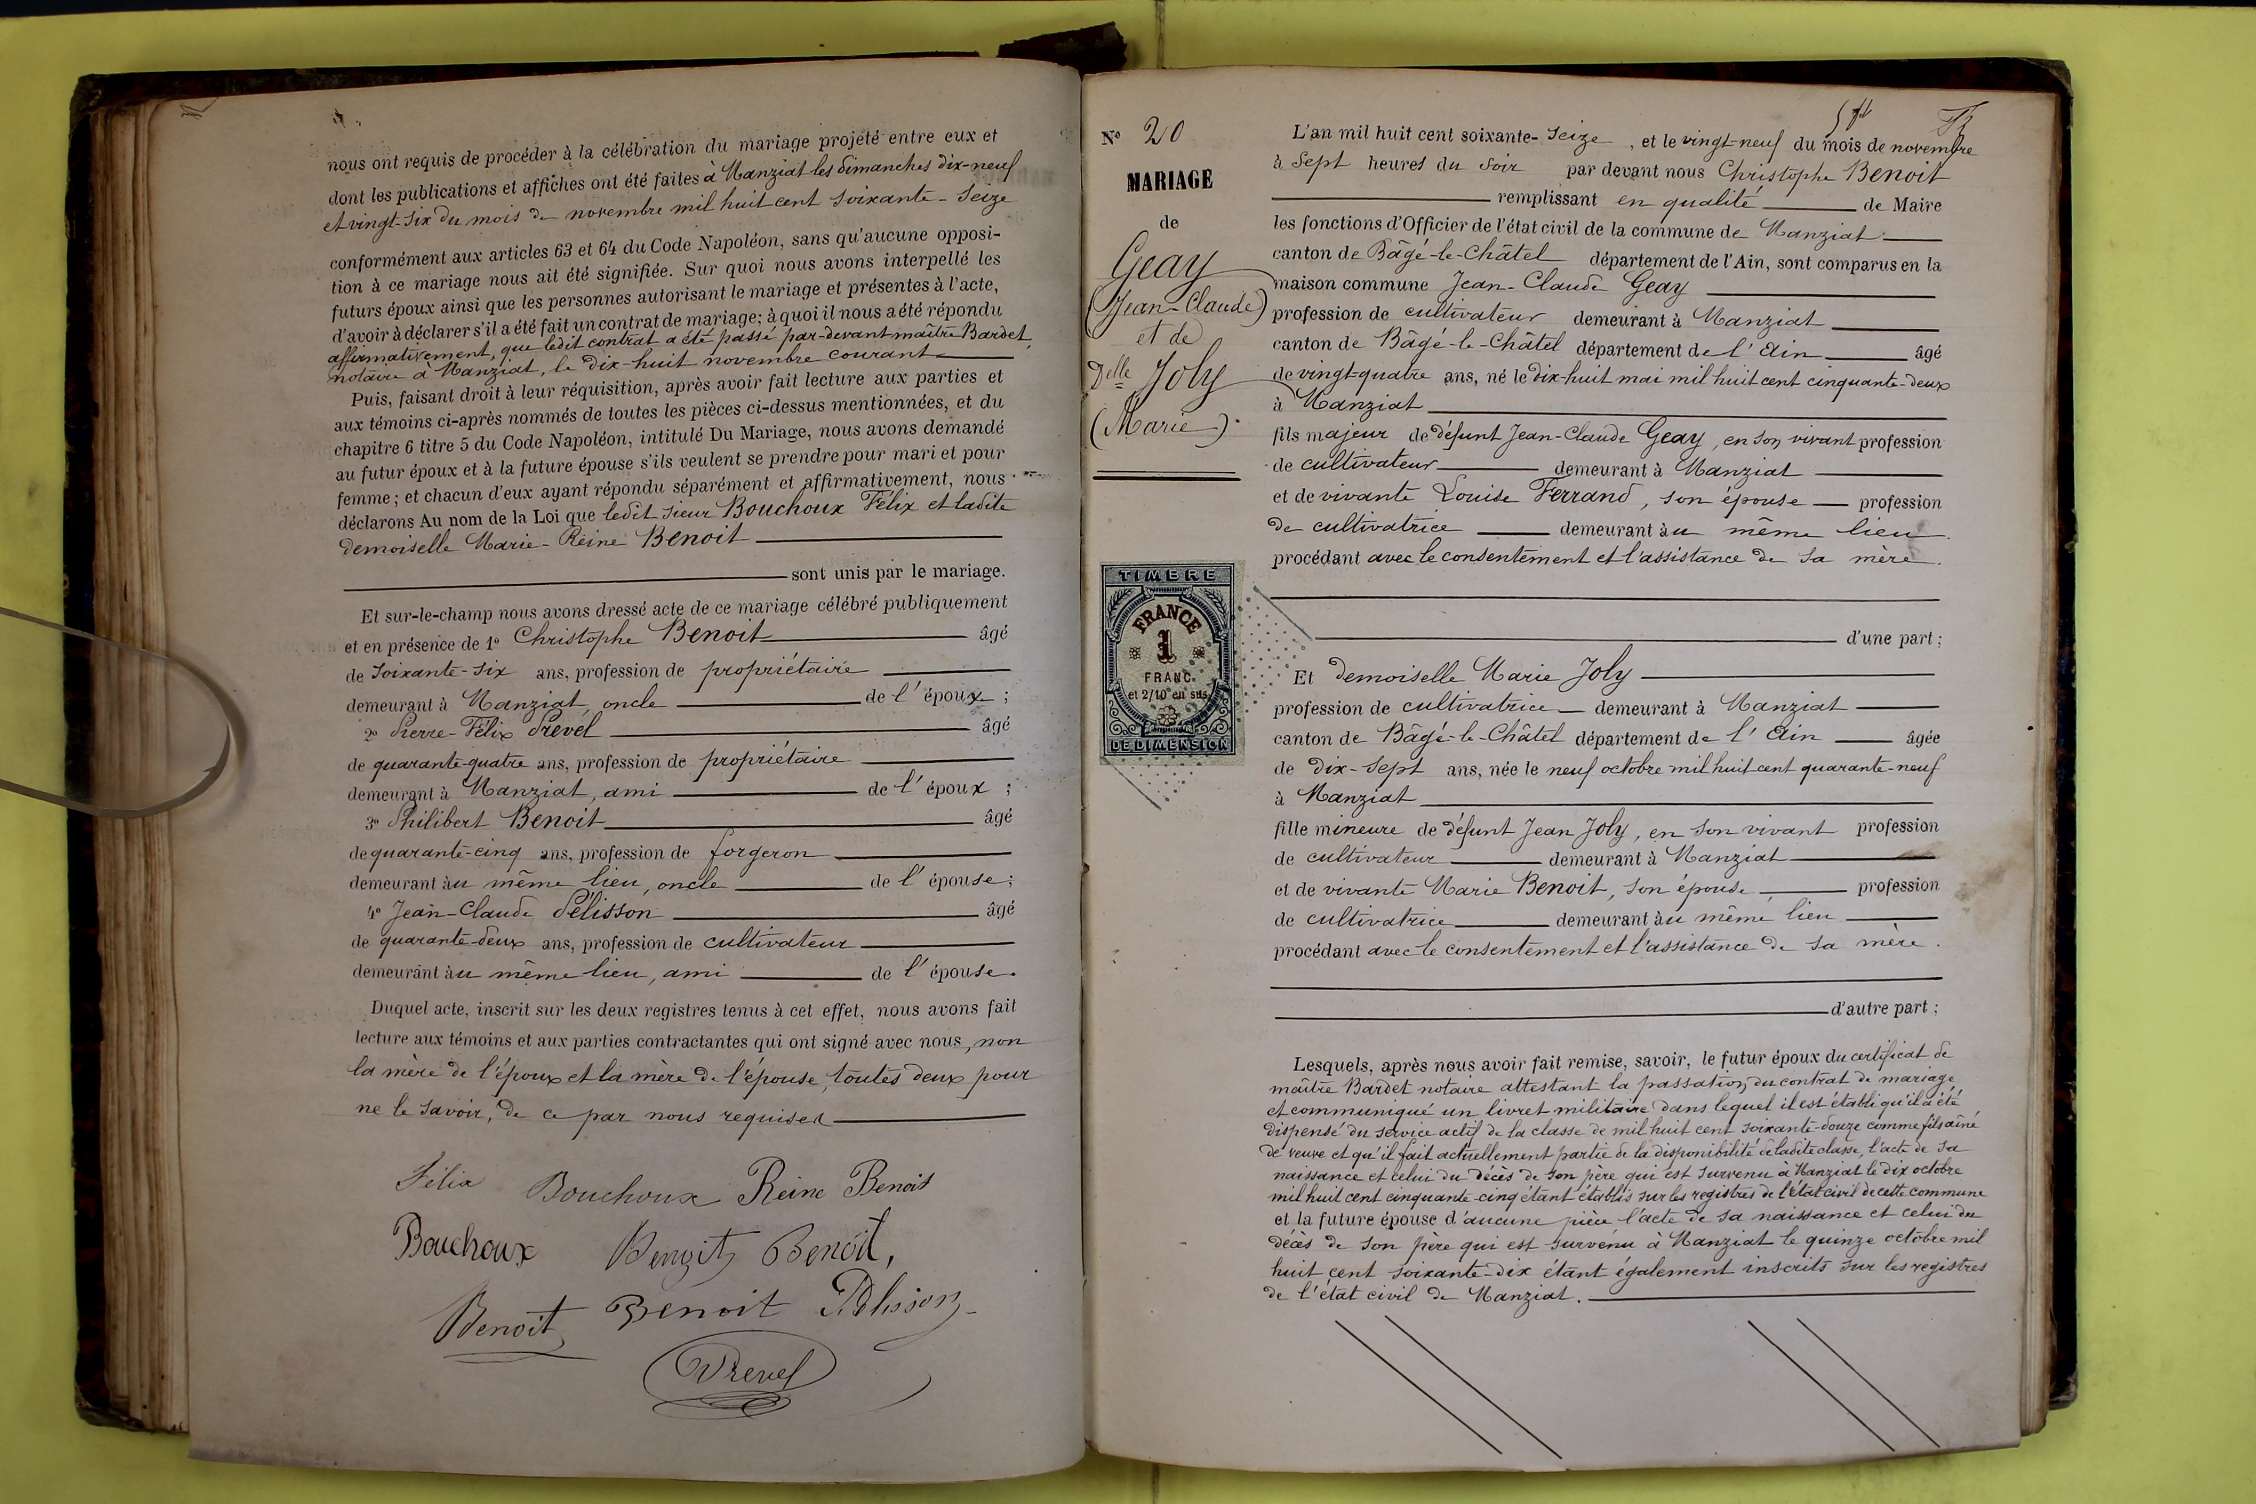 nous ont requis de procéder à la célébration du mariage projeté entre eux et
dont les publications et affiches ont été faites à Manziat les dimanches dix-neuf
et vingt-six du mois de novembre mil huit cent soixante-seize
conformément aux articles 63 et 64 du Code Napoléon, sans qu'aucune opposi-
tion à ce mariage nous ait été signifiée. Sur quoi nous avons interpellé les
futurs époux ainsi que les personnes autorisant le mariage et présentes à l'acte,
d'avoir à déclarer s'il a été fait un contrat de mariage; à quoi il nous a été répondu
affirmativement, que ledit contrat a été passé par-devant maître Bardet,
notaire à Manziat, le dix-huit novembre courant
Puis, faisant droit à leur réquisition, après avoir fait lecture aux parties et
aux témoins ci-après nommés de toutes les pièces ci-dessus mentionnées, et du
chapitre 6 titre 5 du Code Napoléon, intitulé Du Mariage, nous avons demandé
au futur époux et à la future épouse s'ils veulent se prendre pour mari et pour
femme; et chacun d'eux ayant répondu séparément et affirmativement, nous
déclarons Au nom de la Loi que ledit sieur Bouchoux Félix et ladite
demoiselle Marie-Reine Benoit
sont unis par le mariage.
Et sur-le-champ nous avons dressé acte de ce mariage célébré publiquement
et en présence de 1° Christophe Benoit âgé
de soixante-six ans, profession de propriétaire
demeurant à Manziat, oncle de l'époux;
2° Pierre-Félix Prével âgé
de quarante-quatre ans, profession de propriétaire
demeurant à Manziat, ami de l'époux;
3° Philibert Benoit âgé
de quarante-cinq ans, profession de forgeron
demeurant àu même lieu, oncle de l'épouse;
4° Jean-Claude Pélisson âgé
de quarante-deux ans, profession de cultivateur
demeurant àu même lieu, ami de l'épouse.
Duquel acte, inscrit sur les deux registres tenus à cet effet, nous avons fait
lecture aux témoins et aux parties contractantes qui ont signé avec nous, non
la mère de l'époux et la mère de l'épouse, toutes deux pour
ne le savoir, de ce par nous requises
Félix Bouchoux Reine Benoit
Bouchoux Benoit Benoit,
Benoit Benoit Pélisson
Prevel
N° 20
MARIAGE
de
Geay
(Jean-Claude)
et de
Delle Joly
(Marie).
TIMBRE
FRANCE
1
FRANC.
et 2/10 en sus
DE DIMENSION
L'an mil huit cent soixante-seize, et le vingt-neuf du mois de novembre
à sept heures du soir par devant nous Christophe Benoit
remplissant en qualité de Maire
les fonctions d'Officier de l'état civil de la commune de Manziat
canton de Bâgé-le-Châtel département de l'Ain, sont comparus en la
maison commune Jean-Claude Geay
profession de cultivateur demeurant à Manziat
canton de Bâgé-le-Châtel département de l'Ain âgé
de vingt-quatre ans, né le dix-huit mai mil huit cent cinquante-deux
à Manziat
fils majeur de défunt Jean-Claude Geay, en son vivant profession
de cultivateur demeurant à Manziat
et de vivante Louise Ferrand, son épouse profession
de cultivatrice demeurant àu même lieu.
procédant avec le consentement et l'assistance de sa mère.
d'une part;
Et demoiselle Marie Joly
profession de cultivatrice demeurant à Manziat
canton de Bâgé-le-Châtel département de l'Ain âgée
de dix-sept ans, née le neuf octobre mil huit cent quarante-neuf
à Manziat
fille mineure de défunt Jean Joly, en son vivant profession
de cultivateur demeurant à Manziat
et de vivante Marie Benoit, son épouse, profession
de cultivatrice demeurant àu même lieu
procédant avec le consentement et l'assistance de sa mère.
d'autre part;
Lesquels, après nous avoir fait remise, savoir, le futur époux du certificat de
maître Bardet notaire attestant la passation du contrat de mariage
et communiqué un livret militaire dans lequel il est établi qu'il a été
dispensé du service actif de la classe de mil huit cent soixante-douze comme fils aîné
de veuve et qu'il fait actuellement partie de la disponibilité de ladite classe, l'acte de sa
naissance et celui du décès de son père qui est survenu à Manziat le dix octobre
mil huit cent cinquante-cinq étant établis sur les registres de l'état civil de cette commune
et la future épouse d'aucune pièce l'acte de sa naissance et celui du
décès de son père qui est survenu à Manziat le quinze octobre mil
huit cent soixante-dix étant également inscrits sur les registres
de l'état civil de Manziat.